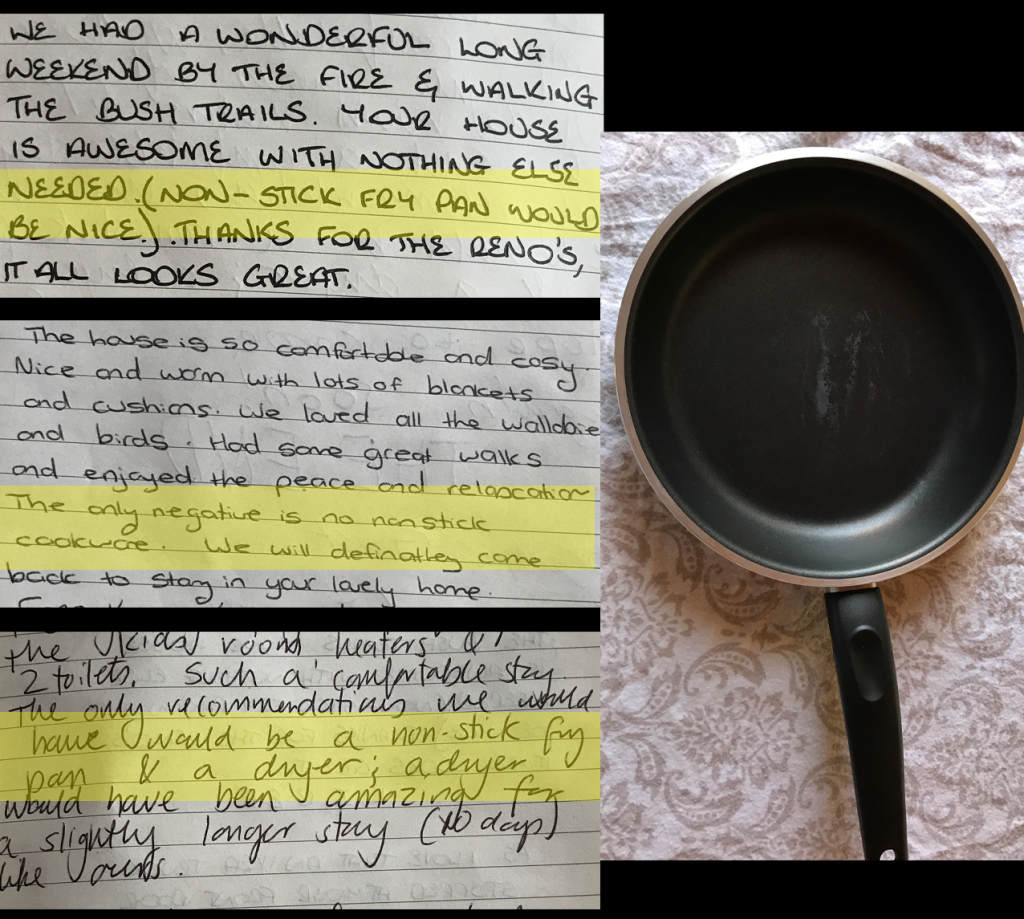 WE HAD A WONDERFUL LONG
WEEKEND BY THE FIRE & WALKING
THE BUSH TRAILS. YOUR HOUSE
IS AWESOME WITH NOTHING ELSE
NEEDED. (NON-STICK FRY PAN WOULD
BE NICE.). THANKS FOR THE RENO'S,
IT ALL LOOKS GREAT.
The house is so comfortable and cosy.
Nice and warm with lots of blankets
and cushions. We loved all the wallabie
and birds. Had some great walks
and enjoyed the peace and relaxation
The only negative is no nonstick
cookware. We will definatley come
back to stay in your lovely home.
the (kids) room heaters &
2 toilets. Such a comfortable stay.
The only recommendations we would
have would be a non-stick fry
pan & a dryer; a dryer
would have been amazing for
a slightly longer stay (10 days)
like ours.